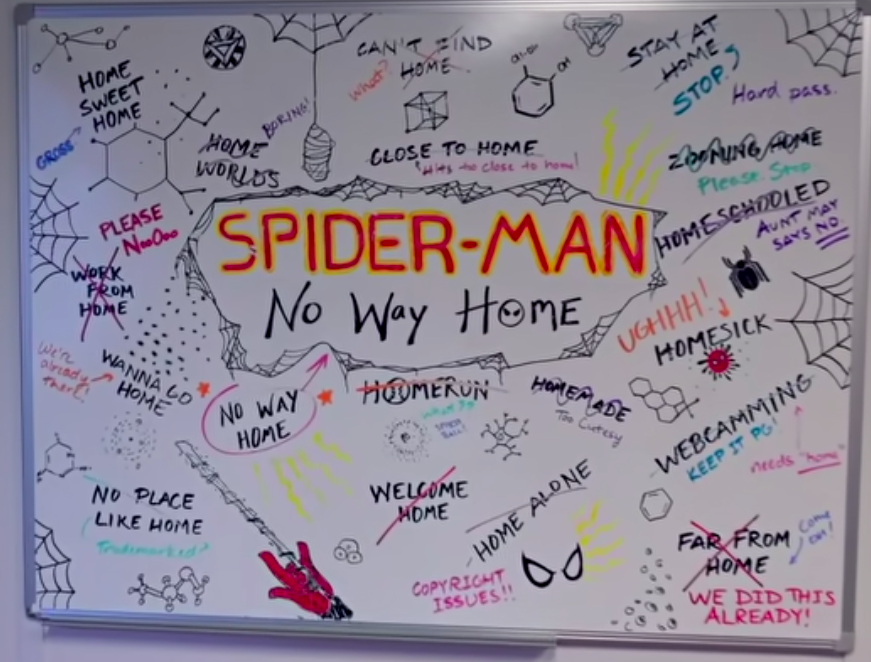 CAN'T FIND
HOME
What?
CH₂-OH
OH
STAY AT
HOME
STOP!
Hard pass.
HOME
SWEET
HOME
GROSS
HOME
WORLDS
BORING!
CLOSE TO HOME
Hits to close to home!
ZOOMING HOME
Please. Stop.
HOMESCHOOLED
AUNT MAY
SAYS NO.
PLEASE
NooOoo
WORK
FROM
HOME
SPIDER-MAN
No Way Home
UGHHH!
HOMESICK
We're
already
there!
WANNA GO
HOME
NO WAY
HOME
HOOMERUN
HOMEMADE
Too Cutesy
WEBCAMMING
KEEP IT PG!
needs "home"
NO PLACE
LIKE HOME
Trademarked?
WELCOME
HOME
HOME ALONE
COPYRIGHT
ISSUES!!
FAR FROM
HOME
COME
ON!
WE DID THIS
ALREADY!